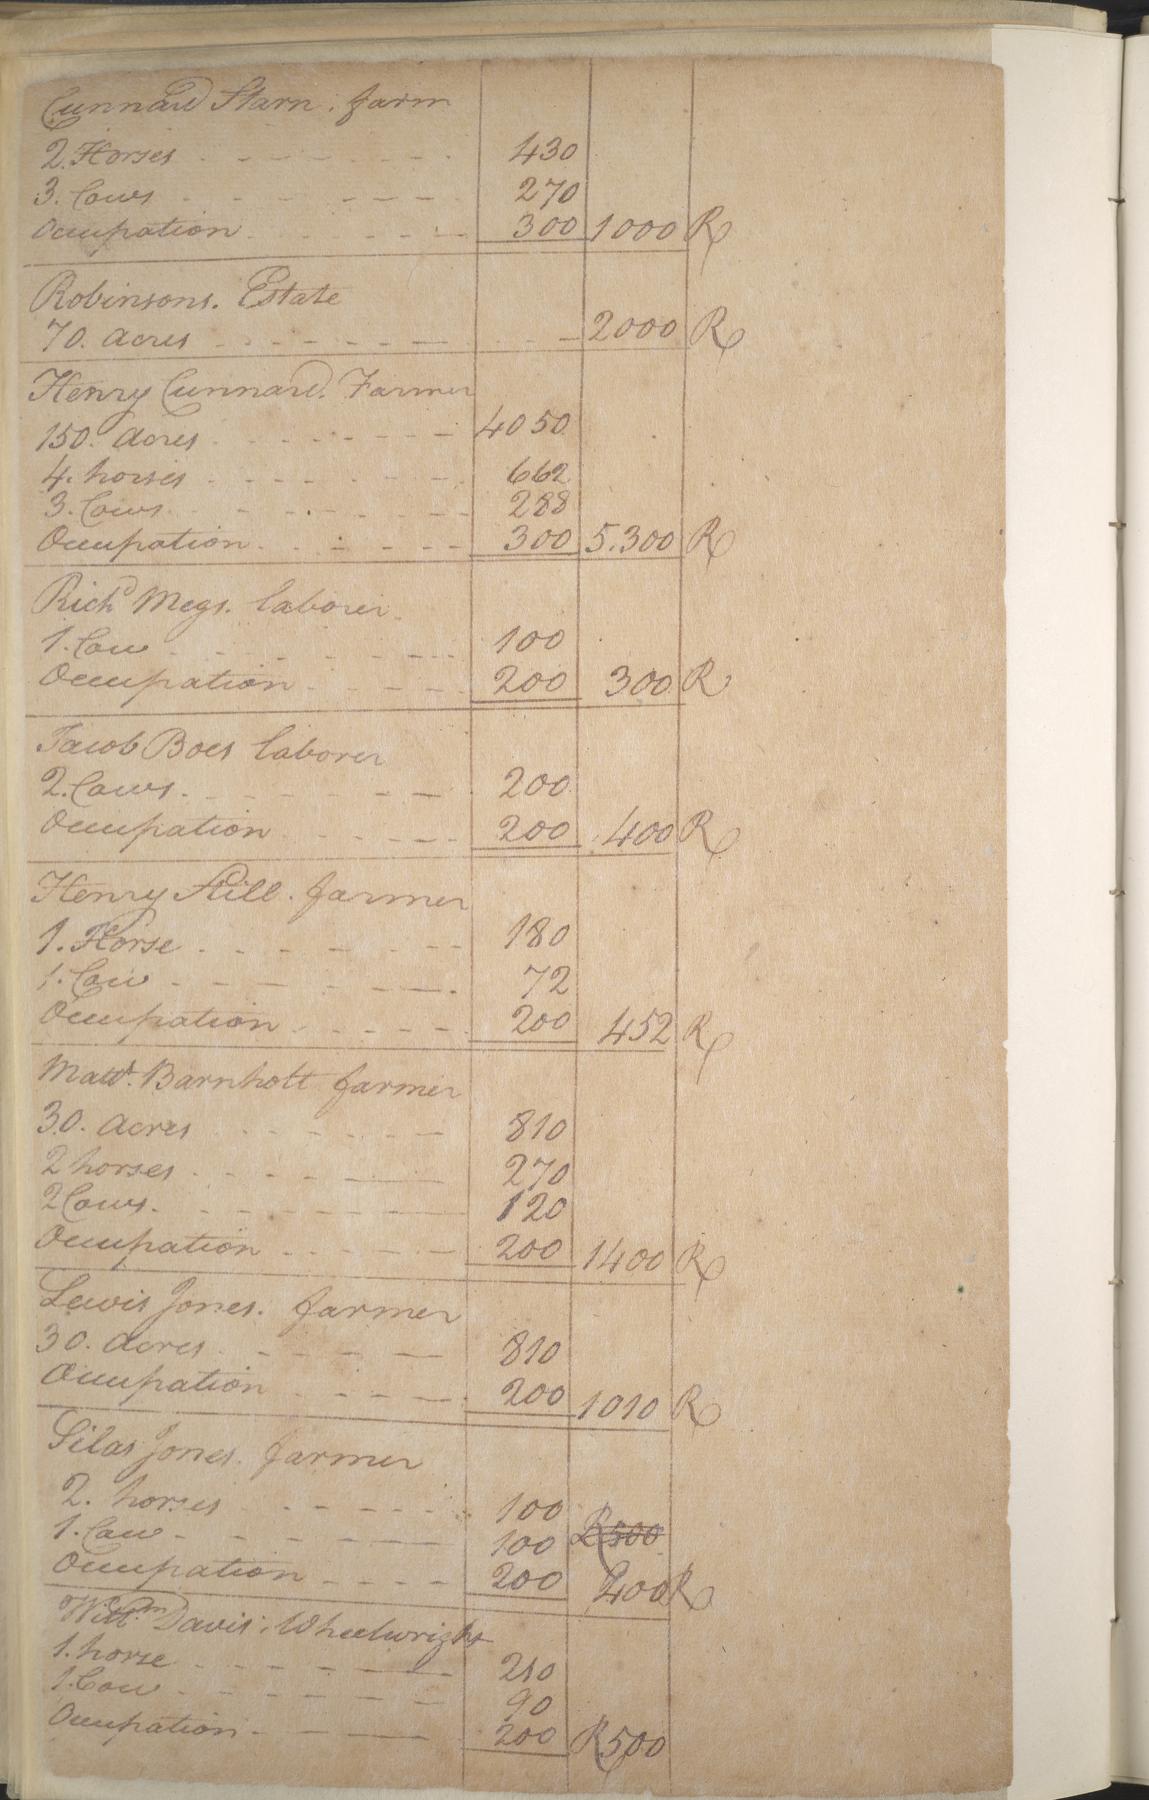 Cunnard Starn. farm
2. Horses 430
3. Cows 270
Occupation 300 1000 R
Robinsons. Estate
70. acres 2000 R
Henry Cunnard. Farmer
150. acres 4050
4. horses 662
3. Cows 288
Occupation 300 5.300 R
Richd Megs. laborer
1. Cow 100
Occupation 200 300 R
Jacob Boes laborer
2. Cows. 200
Occupation 200 400 R
Henry Still. farmer
1. Horse 180
1. Cow 72
Occupation 200 452 R
Matts. Barnholt farmer
30. acres 810
2 horses 270
2 Cows. 120
Occupation 200 1400 R
Lewis Jones. farmer
30. acres 810
Occupation 200 1010 R
Silas Jones. farmer
2. horses 100
1. Cow 100 R 500
Occupation 200 400 R
Willm Davis. Wheelwright
1. horse 210
1. Cow 90
Occupation 200 R 500